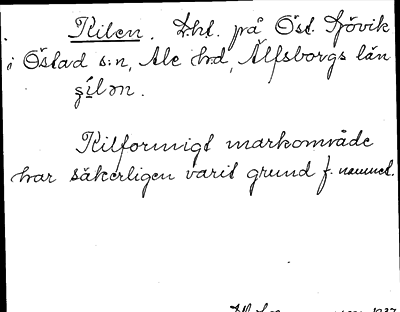 Kilen. Lht. på Öst. Sjövik
i Östad s:n, Ale hd, Älfsborgs län
ʂílən.
Kilformigt markområde
har säkerligen varit grund f. namnet.